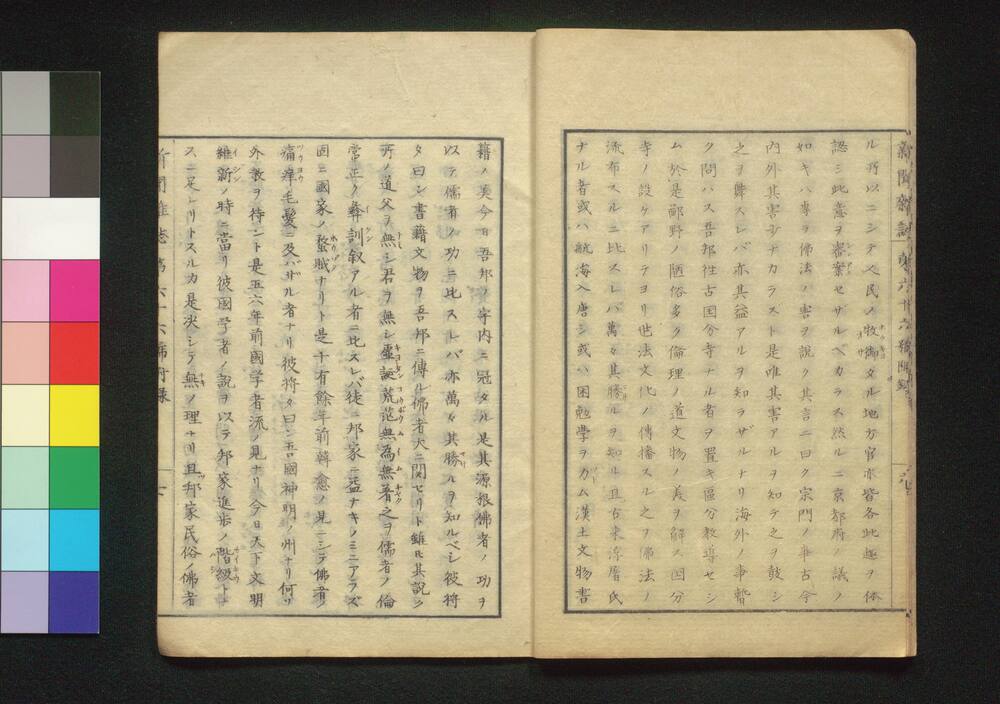 新聞雜誌第六十六號附錄
ル所以ニシテ人民ノ牧御タル地方官亦皆各此趣ヲ体
認シ此意ヲ審案セザルベカラス然ルニ京都府ノ議ノ
如キハ專ヲ佛法ノ害ヲ說ク其言ニ曰ク宗門ノ事古今
內外其害少ナカラズト是唯其害アルヲ知テ之ヲ鼓シ
之ヲ舞スレバ亦其益アルヲ知ラザルナリ海外ノ事暫
ク問ハス吾邦往古国分寺ナル者ヲ置キ區分教導セシ
ム於是鄙野ノ陋俗多ク倫理ノ道文物ノ美ヲ解ス因分
寺ノ設ケアリテヨリ世法文化ノ傳播スル之ヲ佛法ノ
流布スルニ比スレバ萬々其勝ルヲ知ル且古来淳厝氏
ナル者或ハ航海入唐シ或ハ困勉學ヲカム漢土文物書
籍ノ美今日吾邦ノ宇內ニ冠タル是其源根佛者ノ功ヲ
以テ儒者ノ功ニ比スレバ亦萬々其勝ルヲ知ルベシ彼將
タ曰ン書籍文物ヲ吾邦ニ傳ル佛者大ニ関セリト雖㠪其説ク
所ノ道父ヲ無シ君ヲ無シ虛誕荒茫無為無著之ヲ儒者ノ倫
常正ク彝訓叙アル者ニ比スレバ徒ニ邦家ニ益ナキノミニアラズ
固ニ國家ノ蝥賊ナリト是千有餘年前韓愈ノ見ニシテ佛者ノ
痛痒毛髮ニ及バザル者ナリ彼將タ曰ン吾國神明ノ州ナリ何ソ
外教ヲ待ント是五六年前國学者流ノ見ナリ今日天下文明
維新ノ時ニ當リ彼國学者ノ説ヲ以テ邦家進步ノ階級トナ
スニ足レリトスルカ是決シテ無ノ理ナリ且邦家民俗ノ佛者
新聞雜誌第六十六號附錄